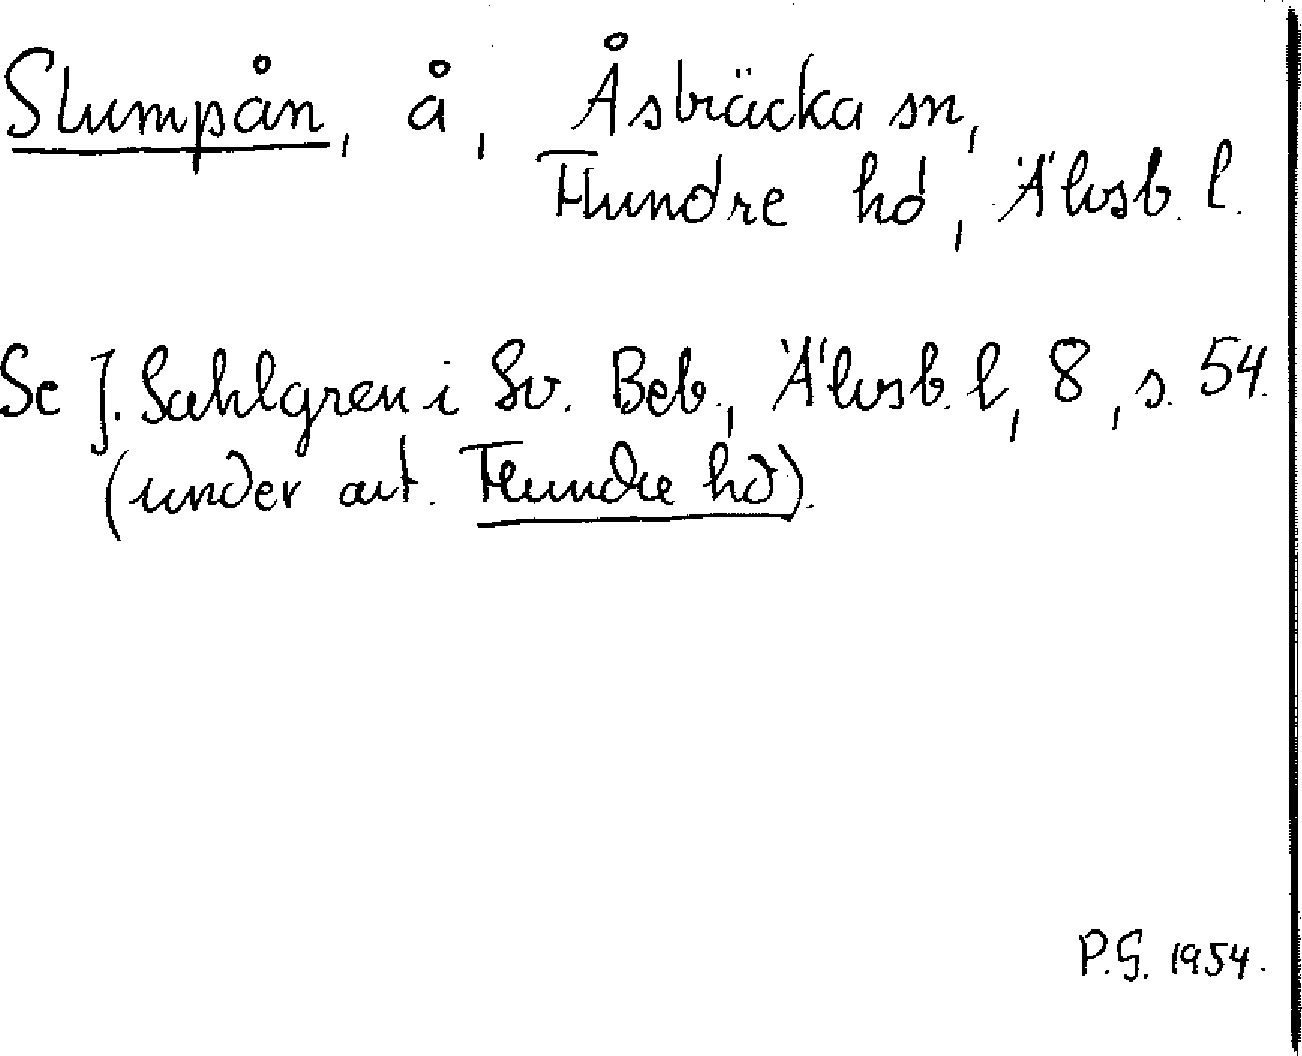 Slumpån, å, Åsbräcka sn,
Flundre hd, Älvsb. l.
Se J. Sahlgren i Sv. Beb., Älvsb. l, 8, s. 54.
(under art. Flundre hd).
P.G. 1954.